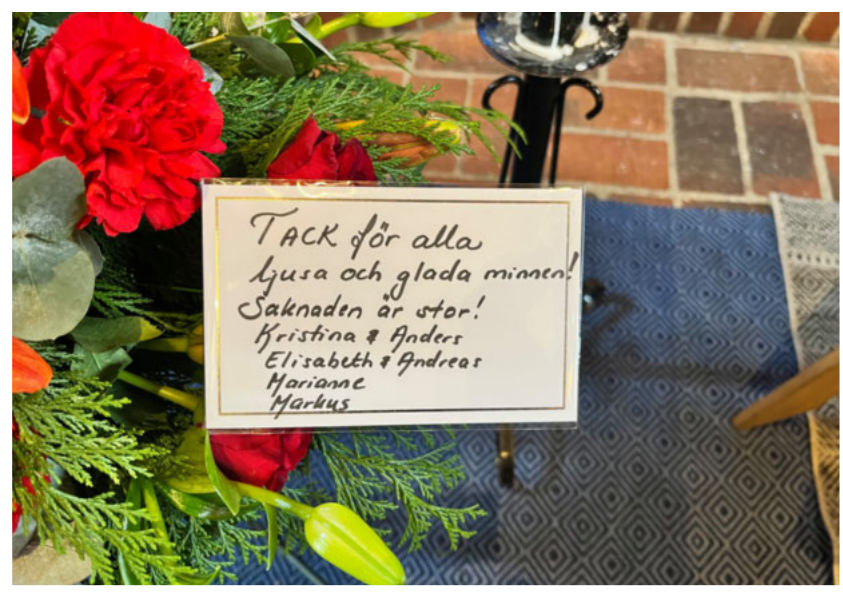 TACK för alla
ljusa och glada minnen!
Saknaden är stor!
Kristina & Anders
Elisabeth & Andreas
Marianne
Markus